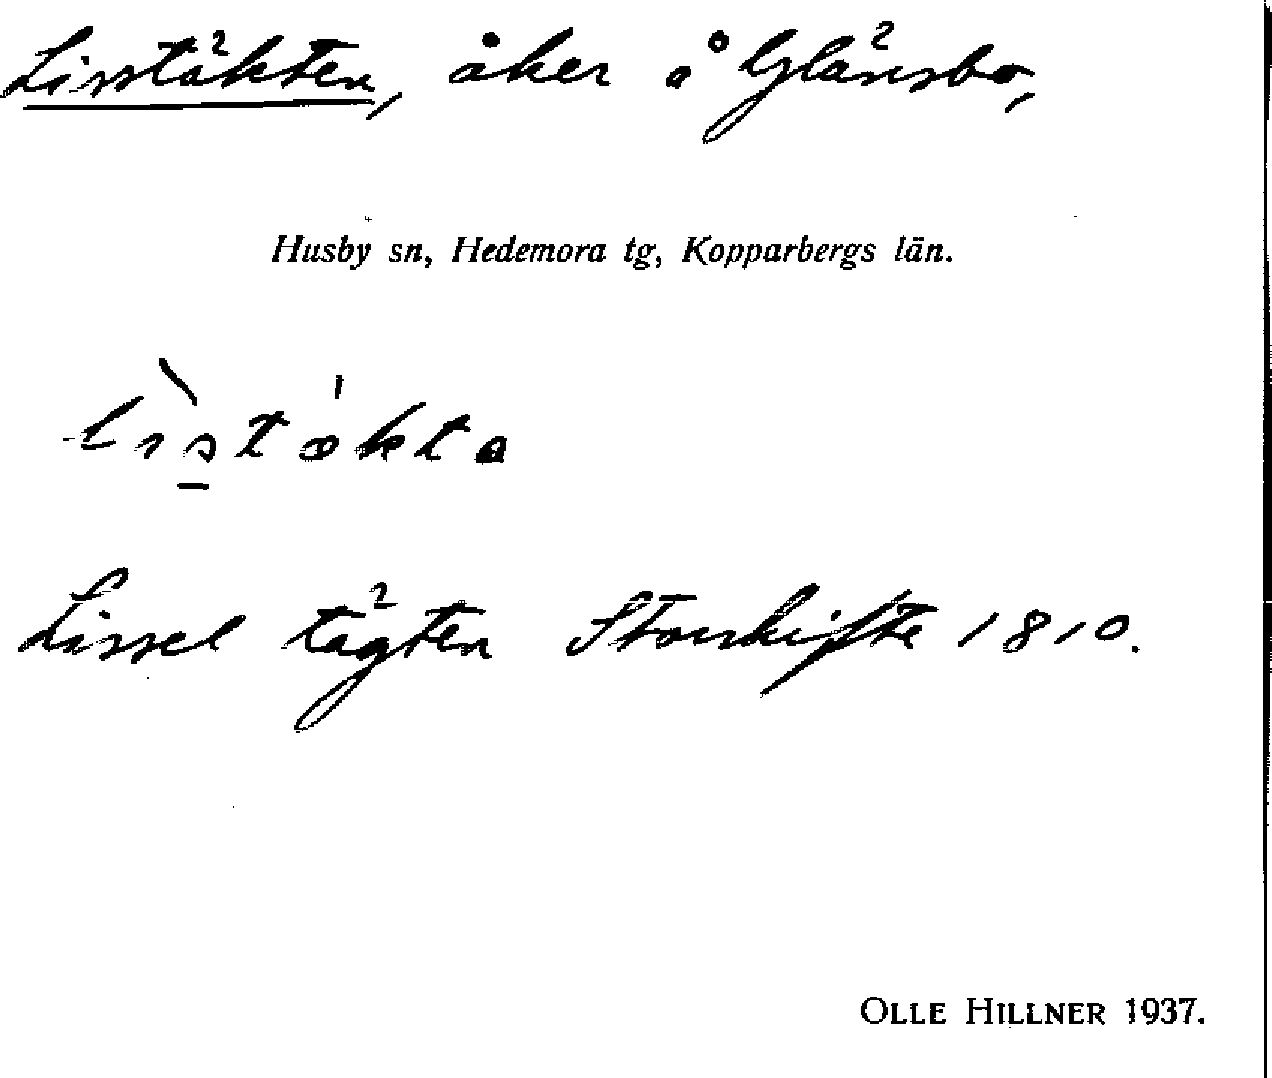 Lisstäkten, åker å Glänsbo,
Husby sn, Hedemora tg, Kopparbergs län.
lìstækta
Lissel tägten Storskifte 1810.
OLLE HILLNER 1937.